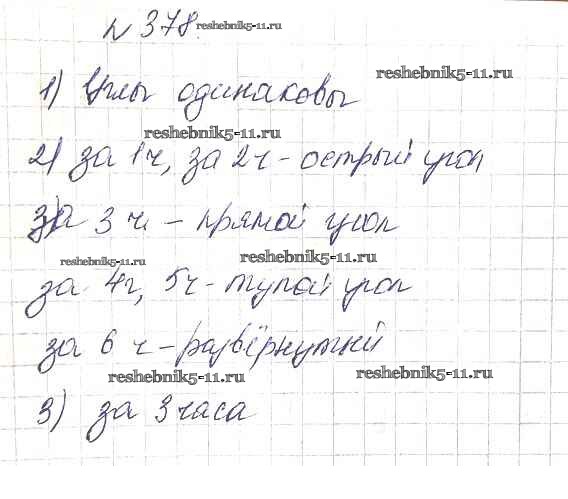 № 378. reshebnik5-11.ru
1) Углы одинаковы reshebnik5-11.ru
reshebnik5-11.ru
2) за 1ч, за 2ч - острый угол
за 3 ч - прямой угол
reshebnik5-11.ru reshebnik5-11.ru
за 4ч, 5ч - тупой угол
за 6 ч - развёрнутый
reshebnik5-11.ru reshebnik5-11.ru
3) за 3 часа